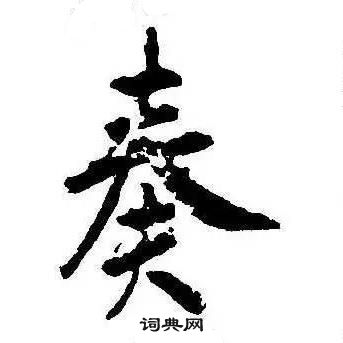 奏
词典网